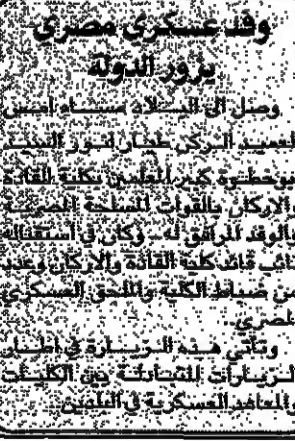 وفد عسكري مصري
يزور الدولة
وصل الى البلاد مساء امس
العميد الركن طيار انور السيد
بوخطوة كبير المعلمين بكلية القادة
والاركان بالقوات المسلحة المصرية
والوفد المرافق له. وكان في استقباله
نائب قائد كلية القادة والاركان وعدد
من ضباط الكلية والملحق العسكري
المصري.
وتأتي هذه الزيارة في اطار
الزيارات المتبادلة بين الكليات
والمعاهد العسكرية في البلدين.